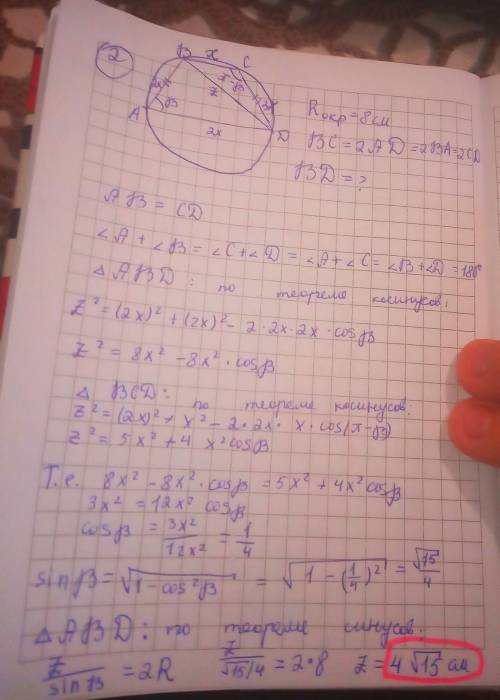 2
B x C
2x π-β 2x
A β z D
2x
Rокр = 8 см
BC = 2AD = 2BA = 2CD
BD = ?
AB = CD
∠A + ∠B = ∠C + ∠D = ∠A + ∠C = ∠B + ∠D = 180°
△ABD: по теореме косинусов:
z² = (2x)² + (2x)² - 2·2x·2x·cosβ
z² = 8x² - 8x²·cosβ
△BCD: по теореме косинусов:
z² = (2x)² + x² - 2·2x·x·cos(π-β)
z² = 5x² + 4x²cosβ
Т.е. 8x² - 8x²·cosβ = 5x² + 4x²cosβ
3x² = 12x² cosβ
cosβ = 3x²/12x² = 1/4
sinβ = √(1 - cos²β) = √(1 - (1/4)²) = √15/4
△ABD: по теореме синусов:
z/sinβ = 2R z/(√15/4) = 2·8 z = 4√15 см